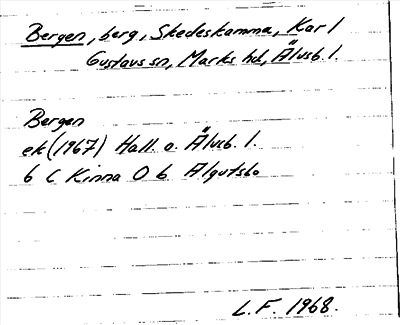 Bergen, berg, Skedeskamma, Karl
Gustavs sn, Marks hd, Älvsb. l.
Bergen
ek (1967) Hall. o. Älvsb. l.
6 C Kinna 0 b Älgutsbo
L.F. 1968.